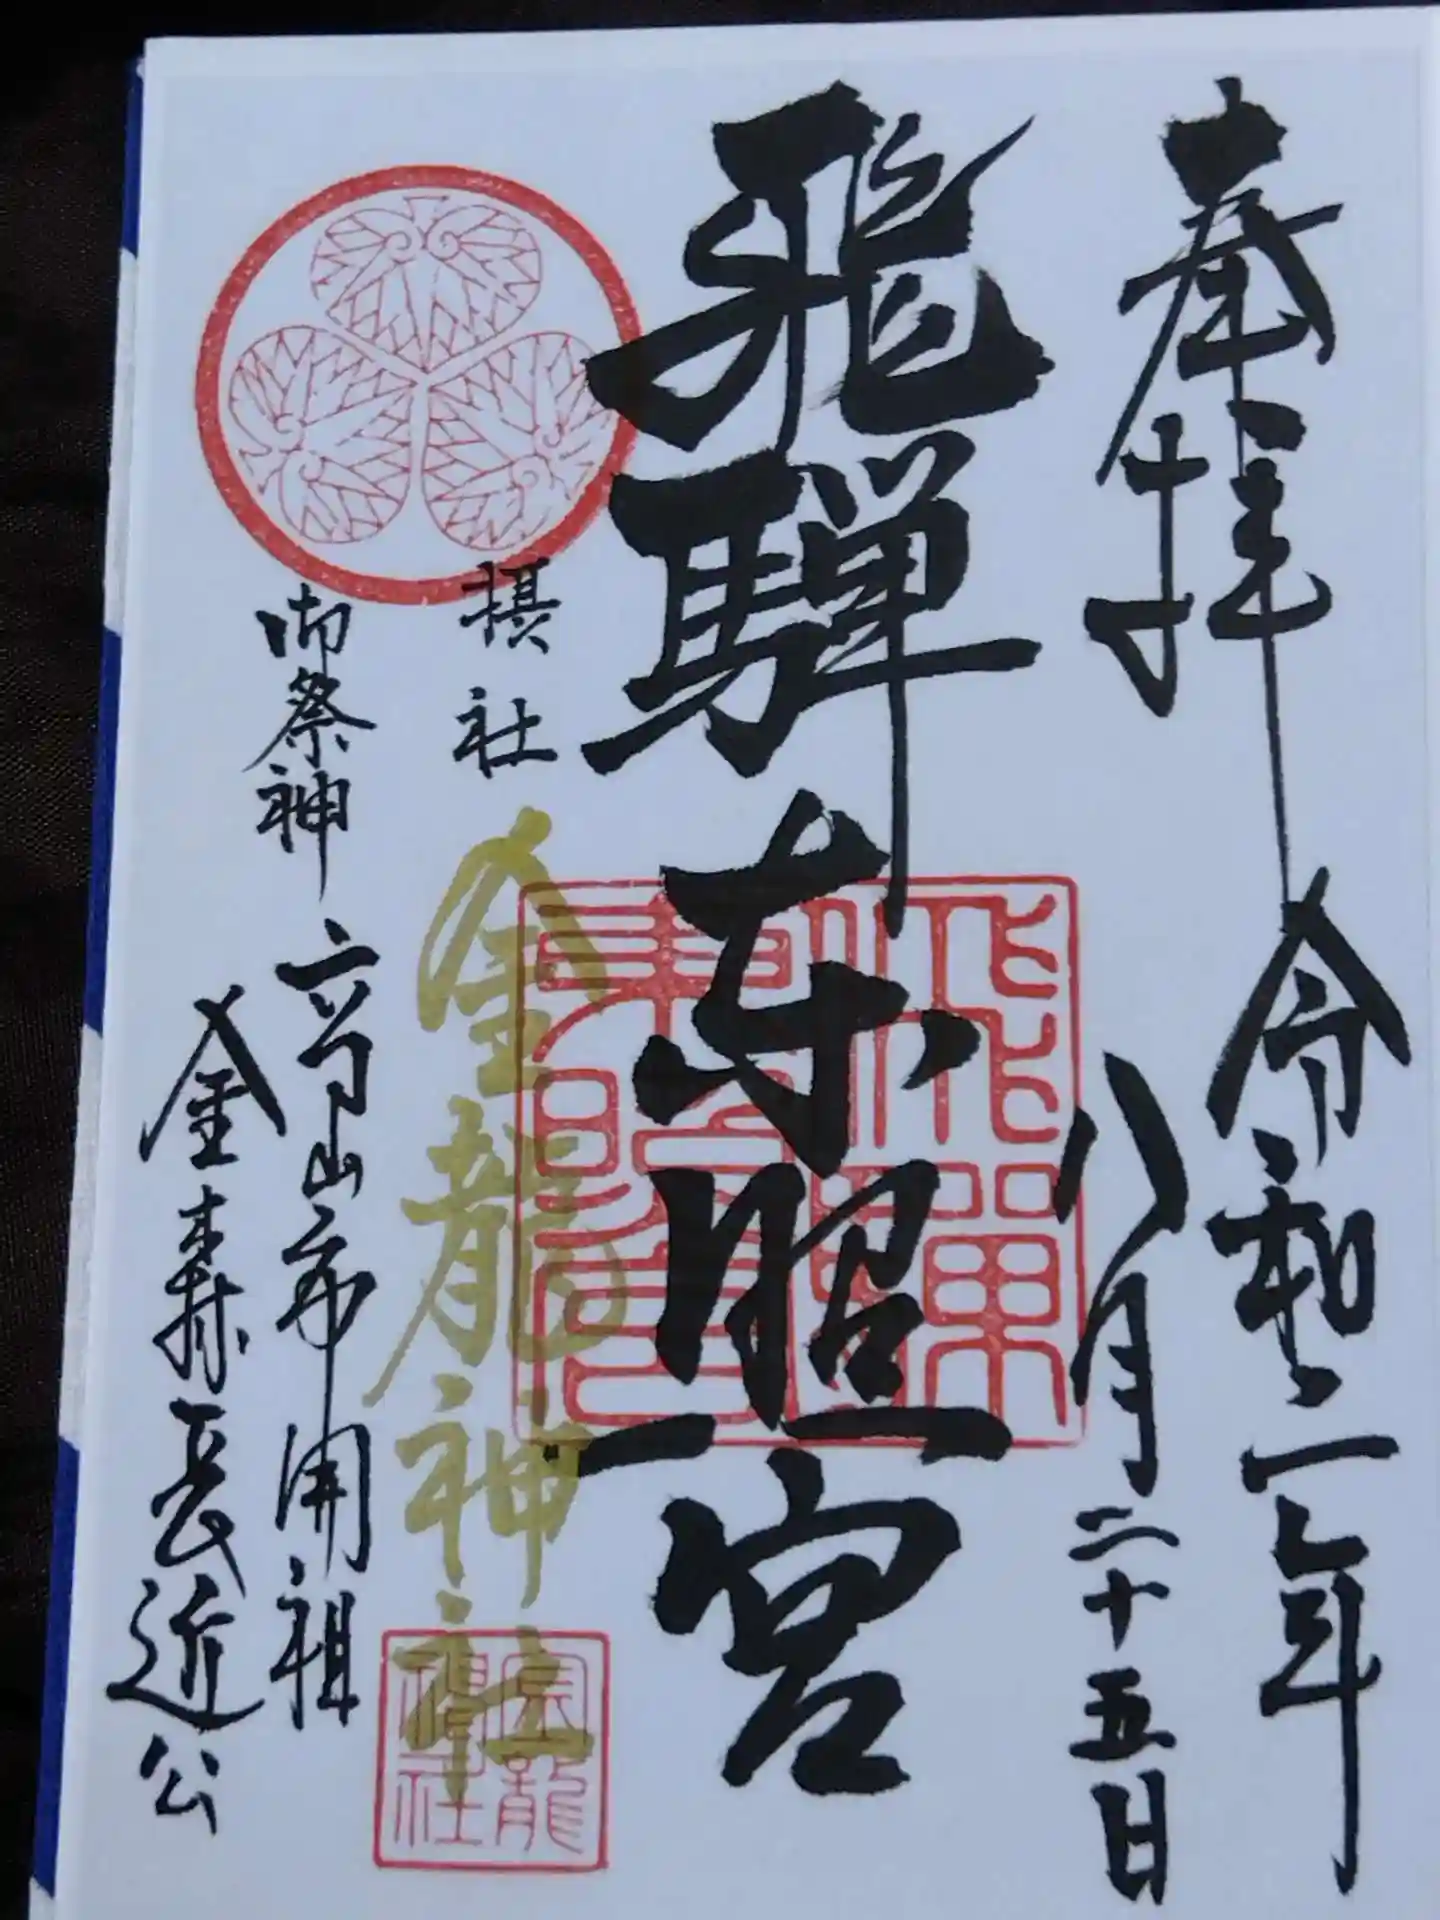 奉拝
令和二年
八月二十五日
飛騨東照宮
飛騨東照宮
摂社
金龍神社
金龍神社
御祭神
高山市開祖
金森長近公